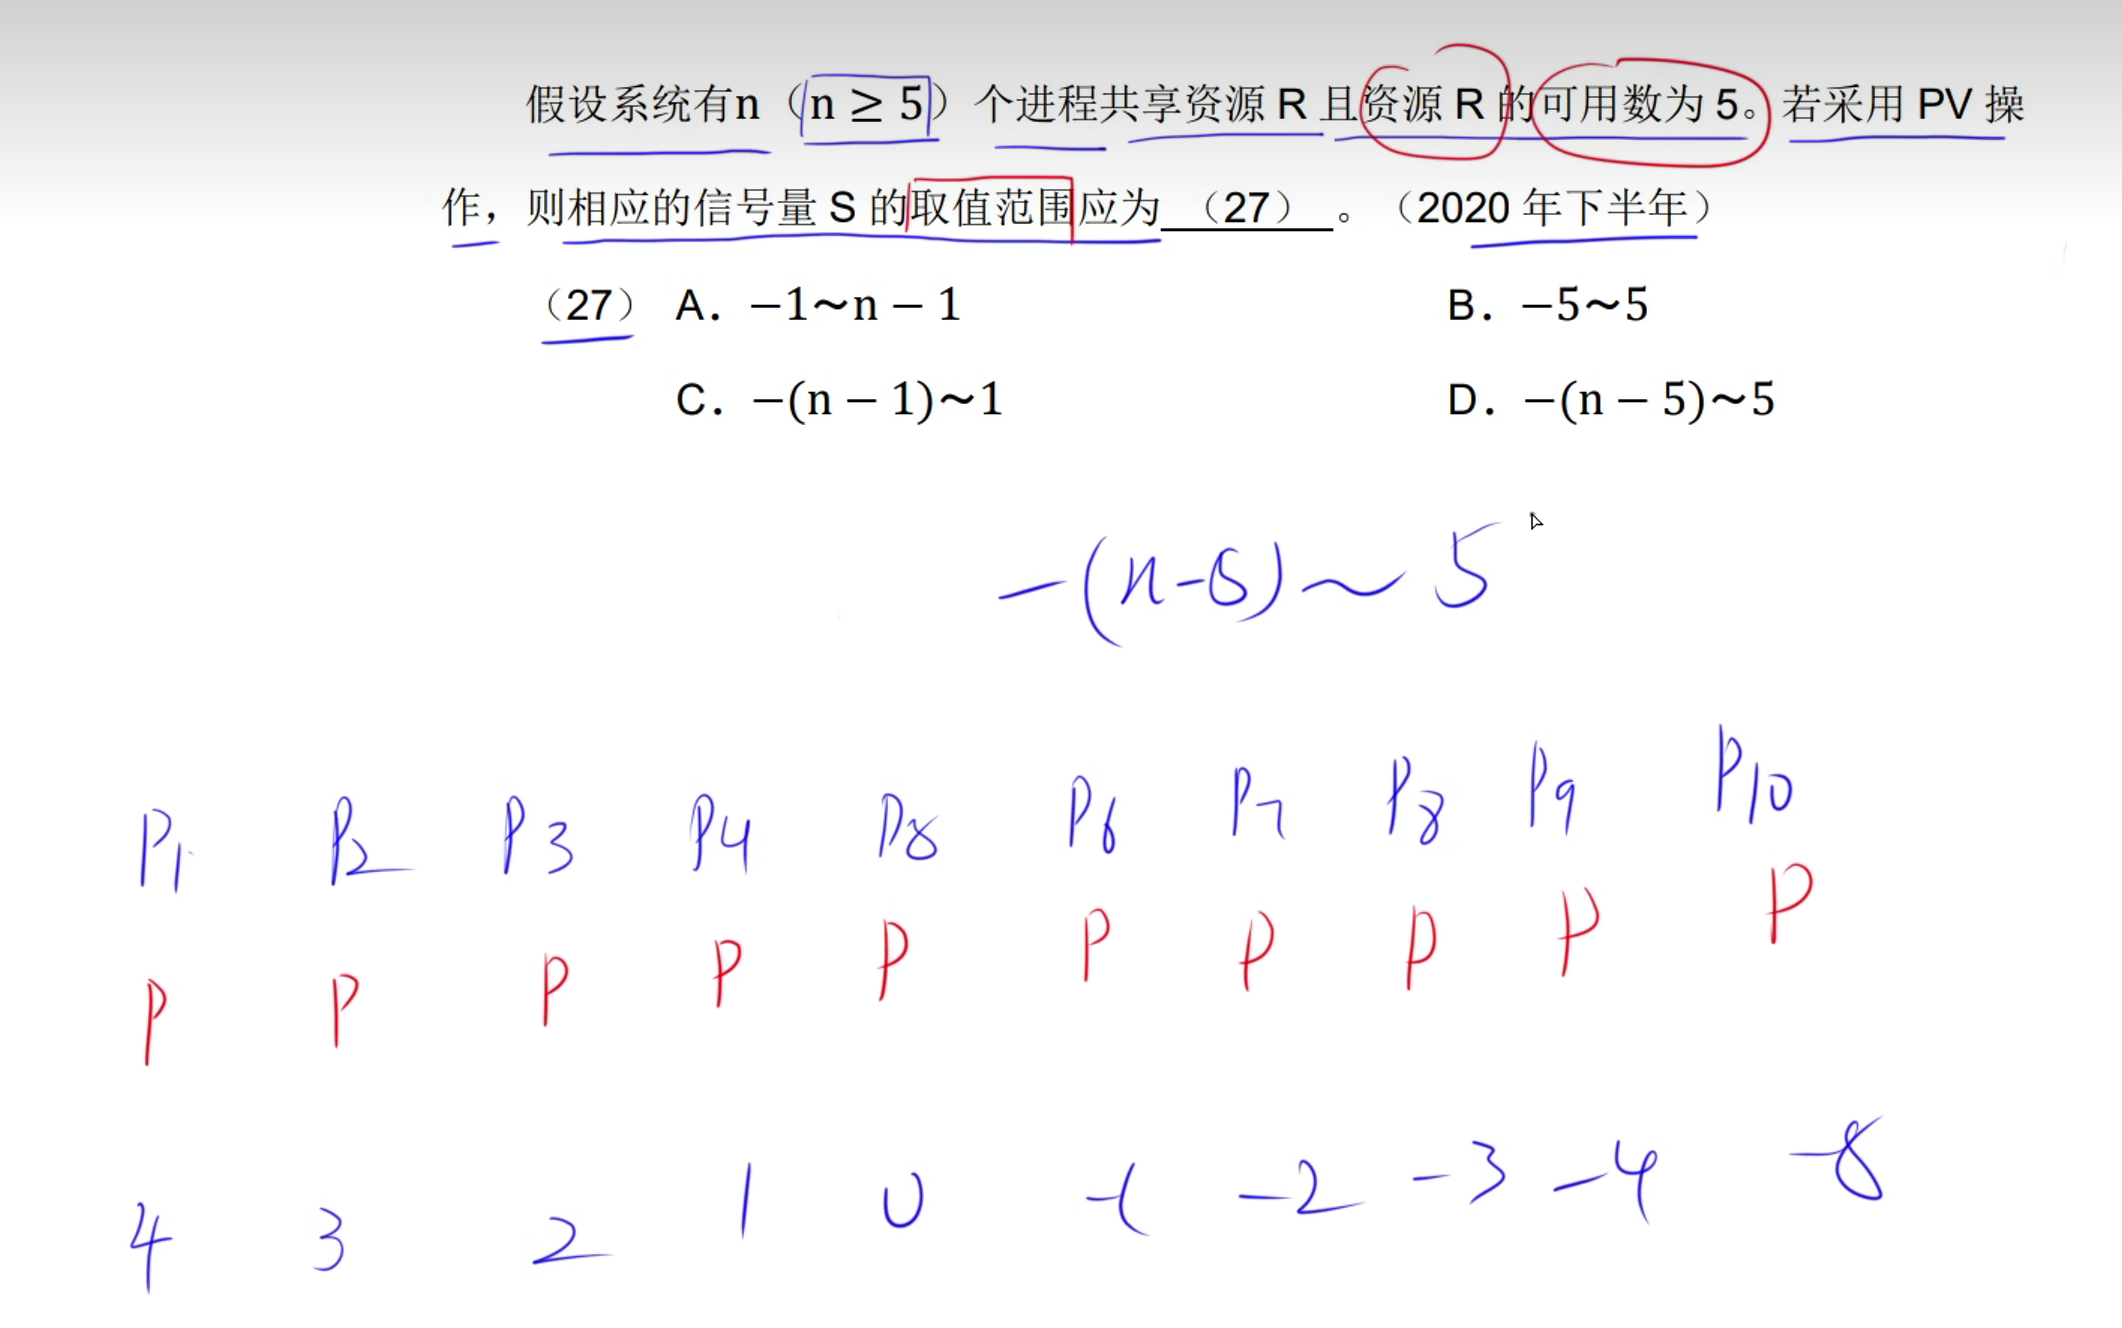 假设系统有n（n ≥ 5）个进程共享资源 R 且资源 R 的可用数为 5。若采用 PV 操
作，则相应的信号量 S 的取值范围应为 （27） 。（2020 年下半年）
（27） A. −1～n − 1 B. −5～5
C. −(n − 1)～1 D. −(n − 5)～5
−(n-5)～5
P1 P2 P3 P4 P5 P6 P7 P8 P9 P10
P P P P P P P P P P
4 3 2 1 0 -1 -2 -3 -4 -5